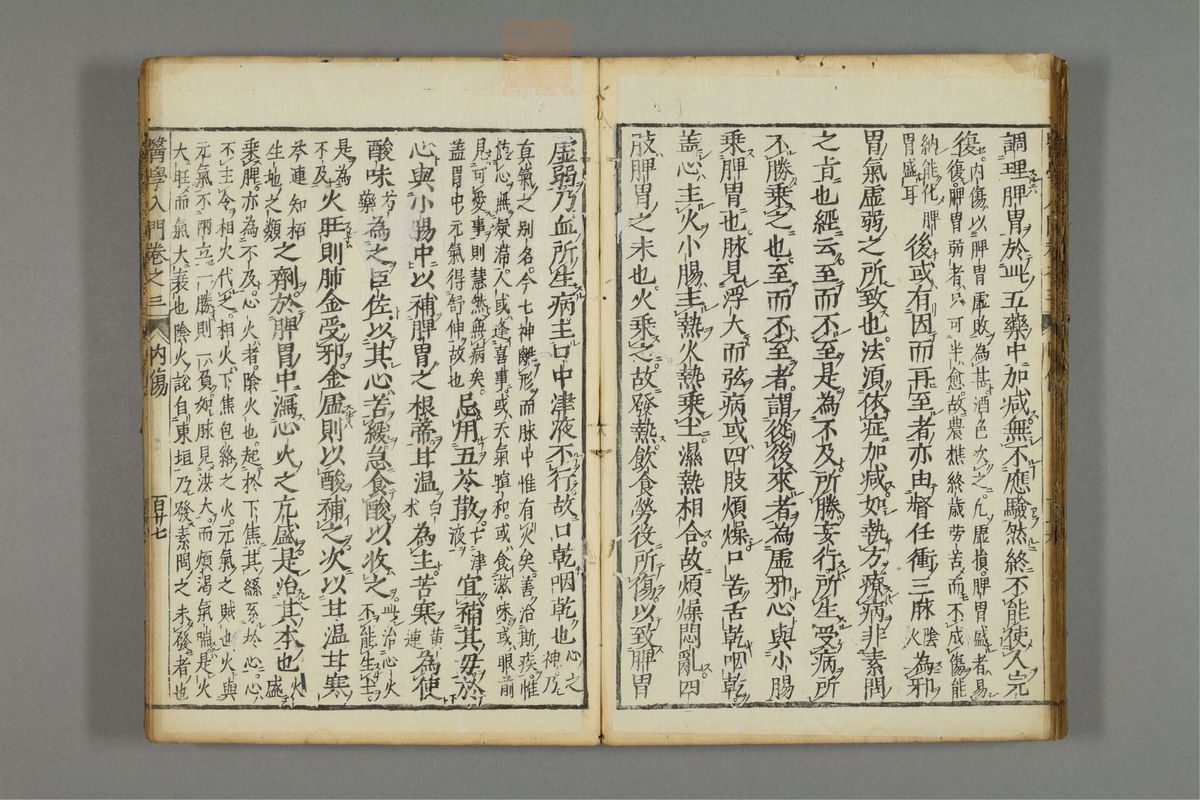 調理脾胃於此五藥中加减無不應驗然終不能使人完
復內傷以脾胃虛敗為甚酒色次之凡虛損脾胃盛者易
復脾胃弱者只可半愈故農樵終歲勞苦而不成傷能
納能化脾
胃盛耳
後或有因而再至者亦由督任衝三脉陰火為邪
胃氣虛弱之所致也法須依症加减如執方療病非素問
之旨也經云至而不至是為不及所勝妄行所生受病所
不勝乘之也至而不至者謂從後來者為虛邪心與小腸
乘脾胃也脉見浮大而弦病或四肢煩燥口苦舌乾咽乾
盖心主火小腸主熱火熱乘土濕熱相合故煩燥悶亂四
肢脾胃之末也火乘之故發熱飲食勞役所傷以致脾胃
虛弱乃血所生病主口中津液不行故口乾咽乾也心之
神乃
真氣之别名今七神離形而脉中惟有火矣善治斯疾惟
在心無凝滞人或逢喜事或天氣暄和或食滋味或眼前
見可愛事則慧然無病矣
盖胃中元氣得舒伸故也
忌用五苓散亡津
液
宜補其母於
心與小腸中以補脾胃之根蒂甘温白
术
為主苦寒黄
連
為使
酸味方
藥
為之臣佐以其心苦緩急食酸以收之此治心火
不能生土
是為
不及
火旺則肺金受邪金虛則以酸補之次以甘温甘寒
芩連知栢
生地之類
之劑於脾胃中瀉心火之亢盛是治其本也火
盛
乘脾亦為不及心火者陰火也起於下焦其絲系於心心
不主令相火代之相火下焦包絡之火元氣之賊也火與
元氣不兩立一勝則一負如脉見洪大而煩渴氣喘是火
大旺而氣大衰也陰火說自東垣乃發素問之未發者也
醫學入門卷之三
內傷
百廿七